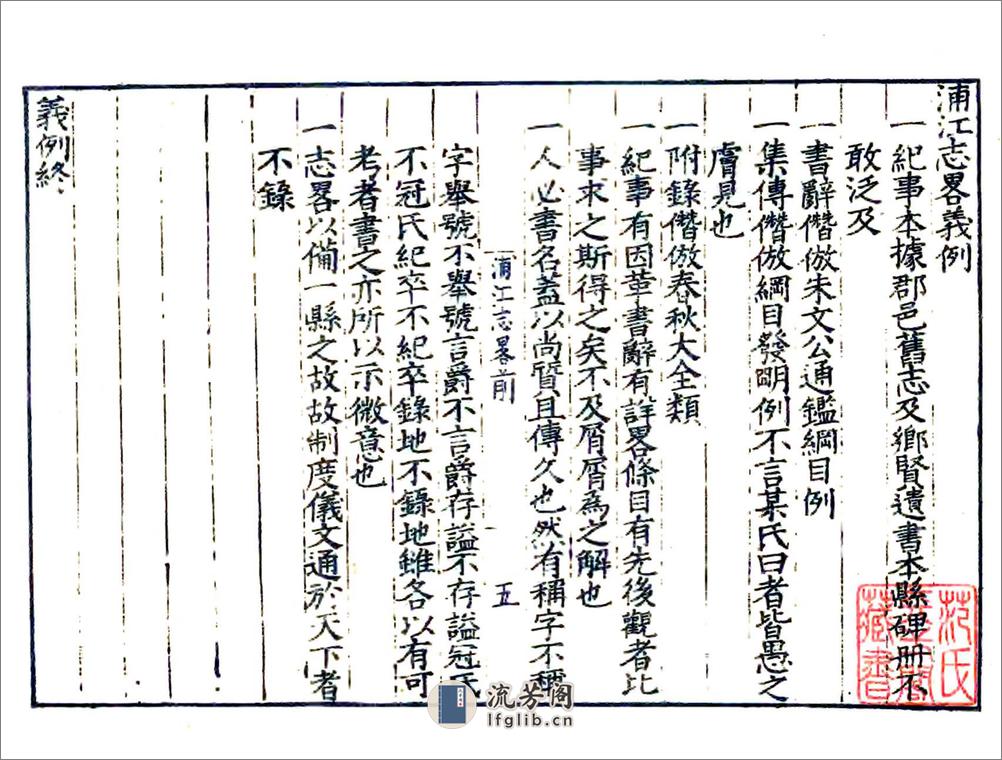 浦江志畧義例
一紀事本據郡邑舊志及鄉賢遺書本縣碑冊不
敢泛及
一書辭僭倣朱文公通鑑綱目例
一集傳僭倣綱目發明例不言某氏曰者皆愚之
膚見也
一附錄僭倣春秋大全類
一紀事有因革書辭有詳畧條目有先後觀者比
事求之斯得之矣不及屑屑為之解也
一人必書名蓋以尚賢且傳久也然有稱字不稱
浦江志畧前 五
字舉號不舉號言爵不言爵存謚不存謚冠氏
不冠氏紀卒不紀卒錄地不錄地雖各以有可
考者書之亦所以示微意也
一志畧以備一縣之故故制度儀文通於天下者
不錄
義例終
范氏天一閣藏書
流芳阁
lfglib.cn